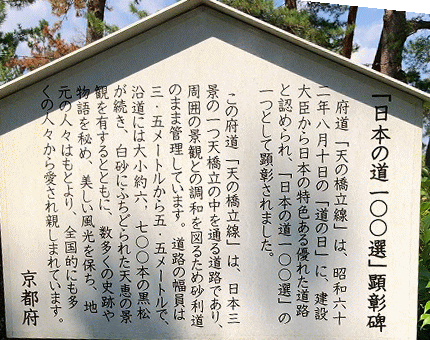 「日本の道一〇〇選」顕彰碑
府道「天の橋立線」は、昭和六十
二年八月十日の「道の日」に、建設
大臣から日本の特色ある優れた道路
と認められ、「日本の道一〇〇選」の
一つとして顕彰されました。
この府道「天の橋立線」は、日本三
景の一つ天橋立の中を通る道路であり、
周囲の景観との調和を図るため砂利道
のまま管理しています。道路の幅員は
三・五メートルから五・五メートルで、
沿道には大小約六、七〇〇本の黒松
が続き、白砂にふちどられた天恵の景
観を有するとともに、数多くの史跡や
物語を秘め、美しい風光を保ち、地
元の人々はもとより、全国的にも多
くの人々から愛され親しまれています。
京都府